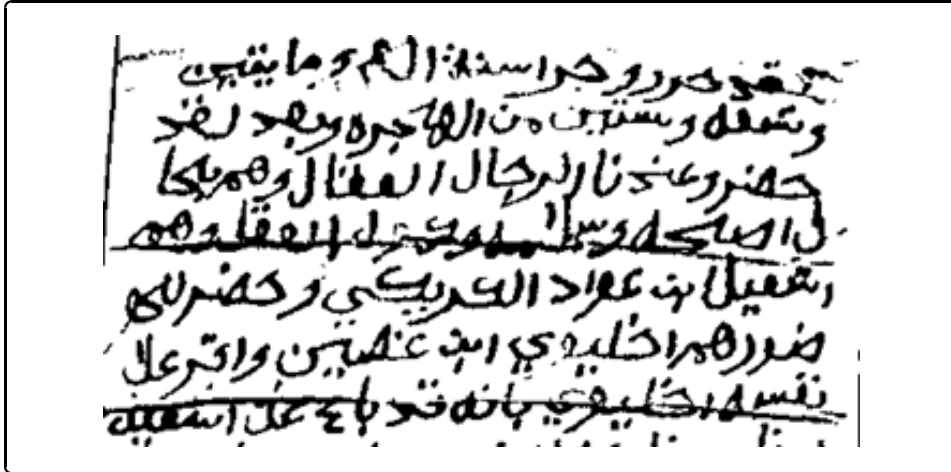 قد حرر وجرا سنة الف و مايتين
وتسعه وستين من الهاجره وبعد لقد
حضرو عندنا الرجال العقال وهم بكا
ل اصحه وسلامه العقل وهم
اشعيل ابن عواد الحريكي وحضر لل
حضورهم اخليوي ابن غصين واقر علا
نفسه اخليوي بانه قد باع على اشعيل